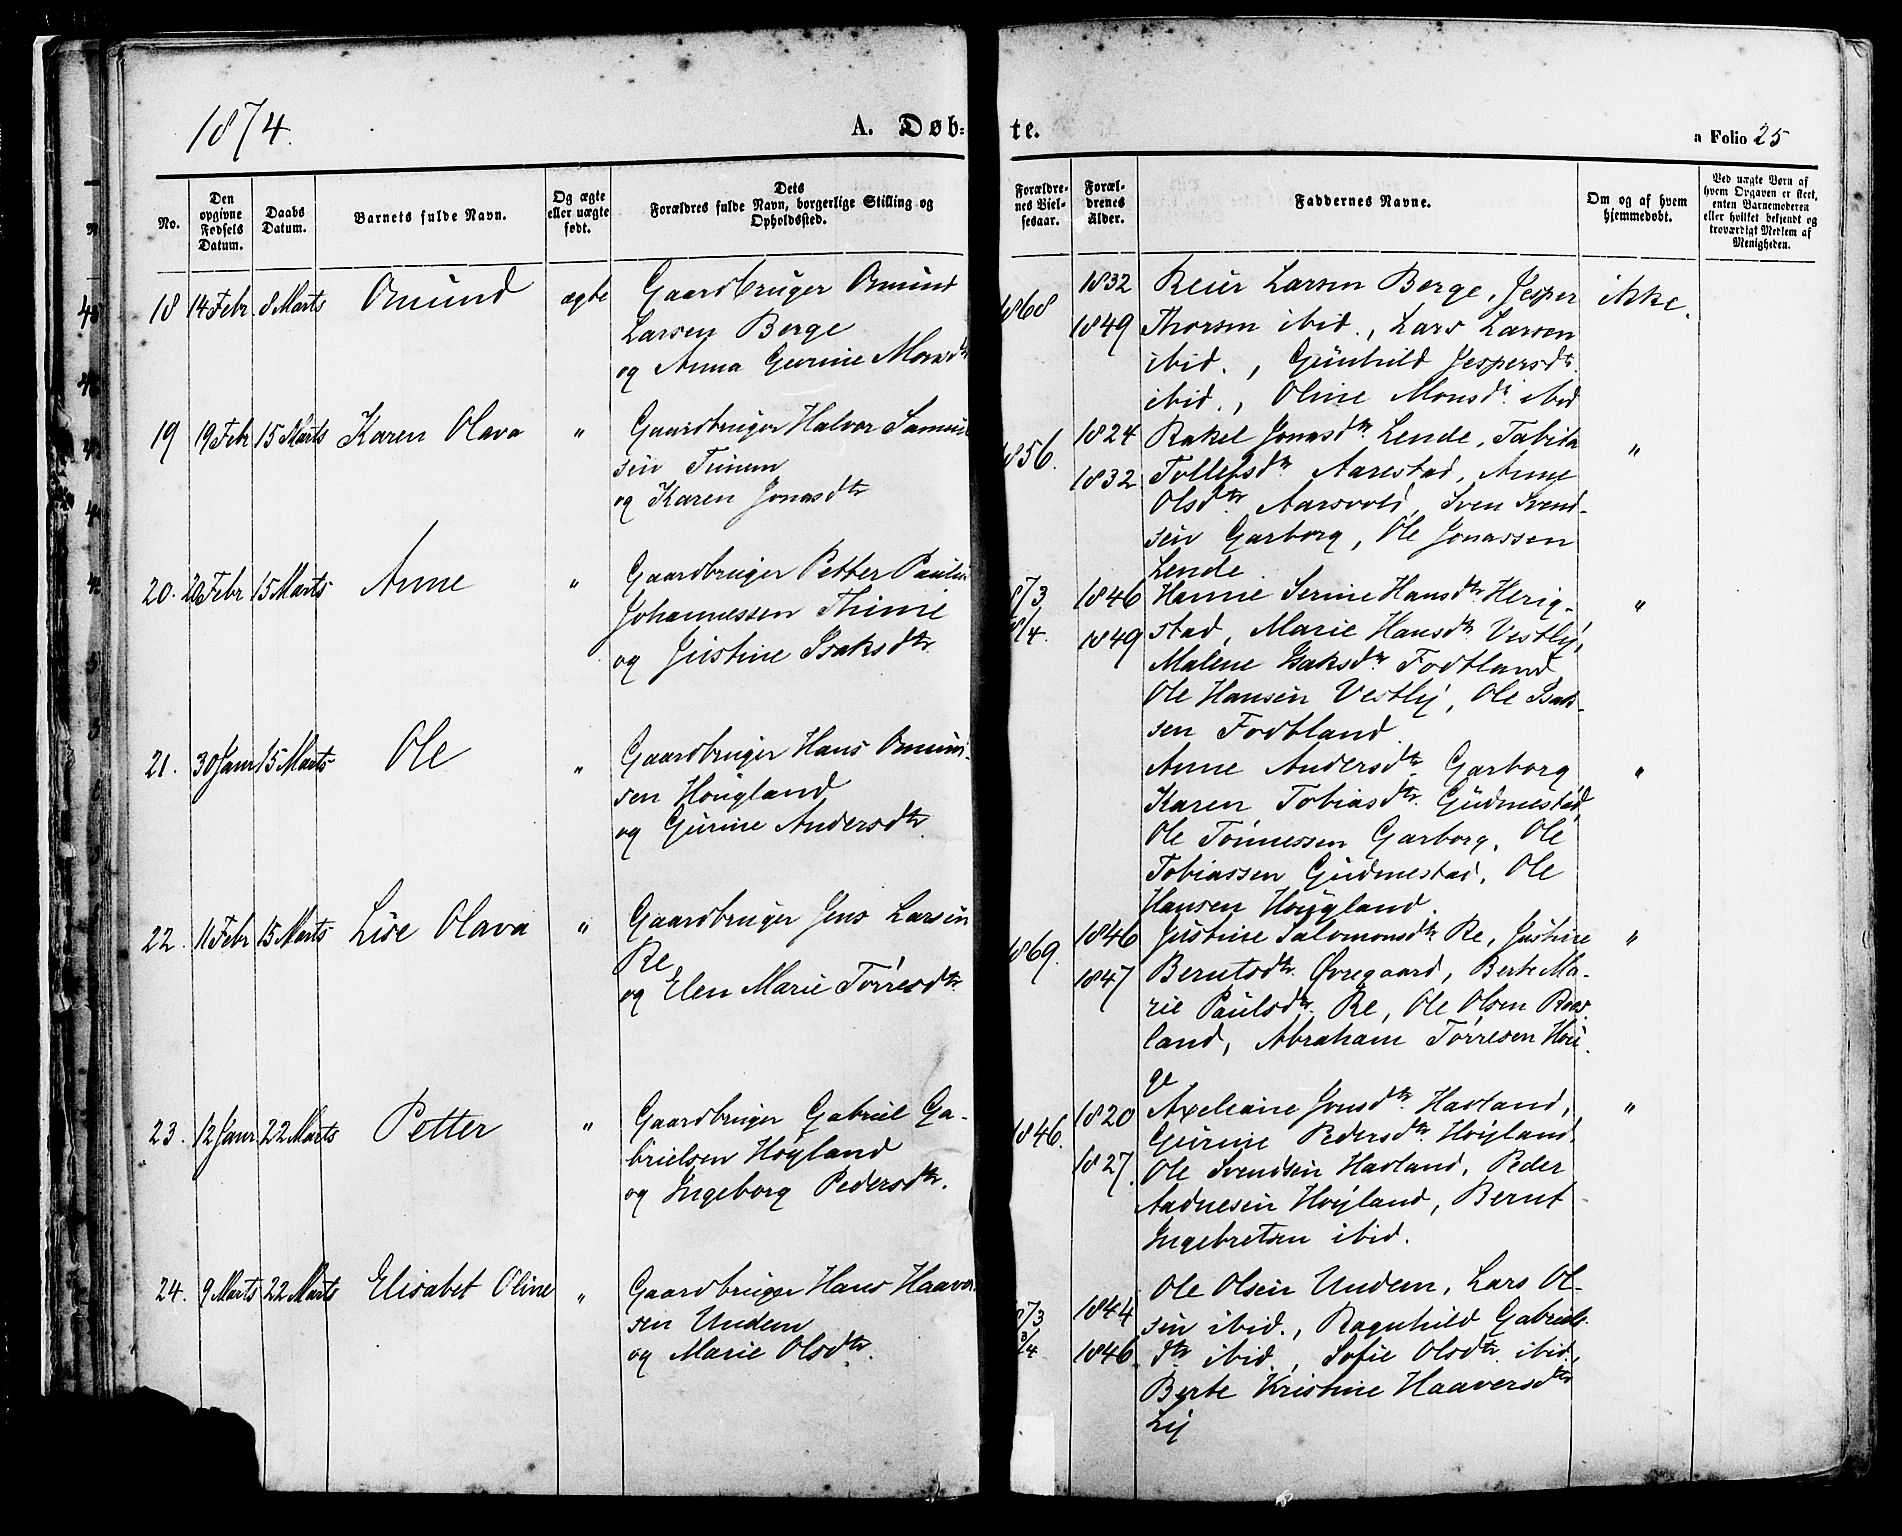 1874.
A. Døb-
te.
a Folio 25
No.
Den
opgivne
Fødsels
Datum.
Daabs
Datum.
Barnets fulde Navn.
Og ægte
eller uægte
født.
Dets
Forældres fulde Navn, borgerlige Stilling og
Opholdssted.
Forældre-
nes Viel-
sesaar.
Foræl-
drenes
Alder.
Faddernes Navne.
Om og af hvem
hjemmedøbt.
Ved uægte Børn af
hvem Opgaven er skeet,
enten Barnemoderen
eller hvilket bekjendt og
troværdigt Medlem af
Menigheden.
18 14 Febr 8 Marts Omund ægte Gaardbruger Omund
Larsen Berge
og Anna Gurine Monsdtr
1868 1832 1849
Reier Larsen Berge, Jesper
Thorsen ibid., Lars Larsen
ibid., Gunhild Jespersdtr
ibid., Oline Monsdtr ibid
ikke.
19 19 Febr 15 Marts Karen Olava " Gaardbruger Halvor Samuel
sen Tunem
og Karen Jonasdtr
1856. 1824 1832
Rakel Jonasdtr Lende, Tabita
Tollefsdtr Aarestad, Anne
Olsdtr Aarsvold, Sven Svend-
sen Garborg, Ole Jonassen
Lende.
"
20. 20 Febr 15 Marts Anne " Gaardbruger Petter Paulus
Johannessen Thime
og Justine Isaksdtr
73 1846 1849
Hanne Serine Hansdtr Herig-
stad, Marie Hansdtr Vestly,
Malene Isaksdtr Fodtland
Ole Hansen Vestly, Ole Isak-
sen Fodtland
"
21. 30 Janr 15 Marts Ole " Gaardbruger Hans Omund-
sen Hougland
og Gurine Andersdtr.
Anne Andersdtr Garborg
Karen Tobiasdtr. Gudmestad
Ole Tønnessen Garborg, Ole
Tobiassen Gudmestad, Ole
Hansen Hougland.
"
22. 11 Febr 15 Marts Lise Olava " Gaardbruger Jens Larsen
Re
og Elen Marie Tørresdtr.
1869. 1846 1847
Justine Salomonsdtr Re, Justine
Berntsdtr. Øvregaard, Berte Ma-
rie Paulsdtr. Re, Ole Olsen Ros-
land, Abraham Tørresen Hau-
ge
"
23. 12 Janr 22 Marts Petter " Gaardbruger Gabriel Ga-
brielsen Høyland
og Ingeborg Pedersdtr.
1846. 1820 1827.
Axeliane Jonsdtr. Havland,
Gurine Pedersdtr. Høyland,
Ole Svendsen Havland, Peder
Aadnesen Høyland, Bernt
Ingebretsen ibid.
"
24. 9 Marts 22 Marts Elisabet Oline " Gaardbruger Hans Haavor
sen Undem
og Marie Olsdtr.
73 1844 1846
Ole Olsen Undem, Lars Ol-
sen ibid., Ragnhild Gabriels
dtr ibid., Sofie Olsdtr. ibid,
Berte Kristine Haaversdtr
Lÿ